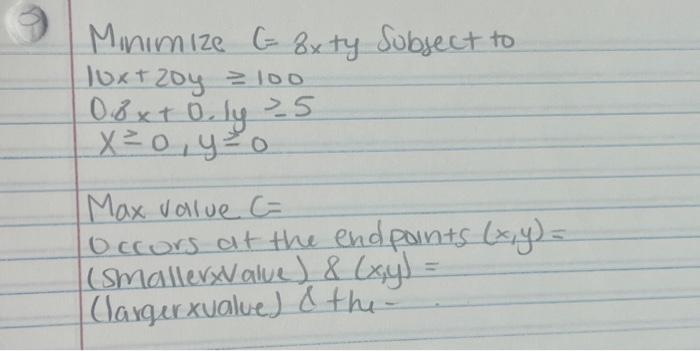 9
Minimize C= 8x+y Subject to
10x+20y ≥ 100
0.8x + 0.1y ≥ 5
x ≥ 0, y ≥ 0
Max value C=
occurs at the endpoints (x,y)=
(smaller x value) & (x,y) =
(larger x value) & the -